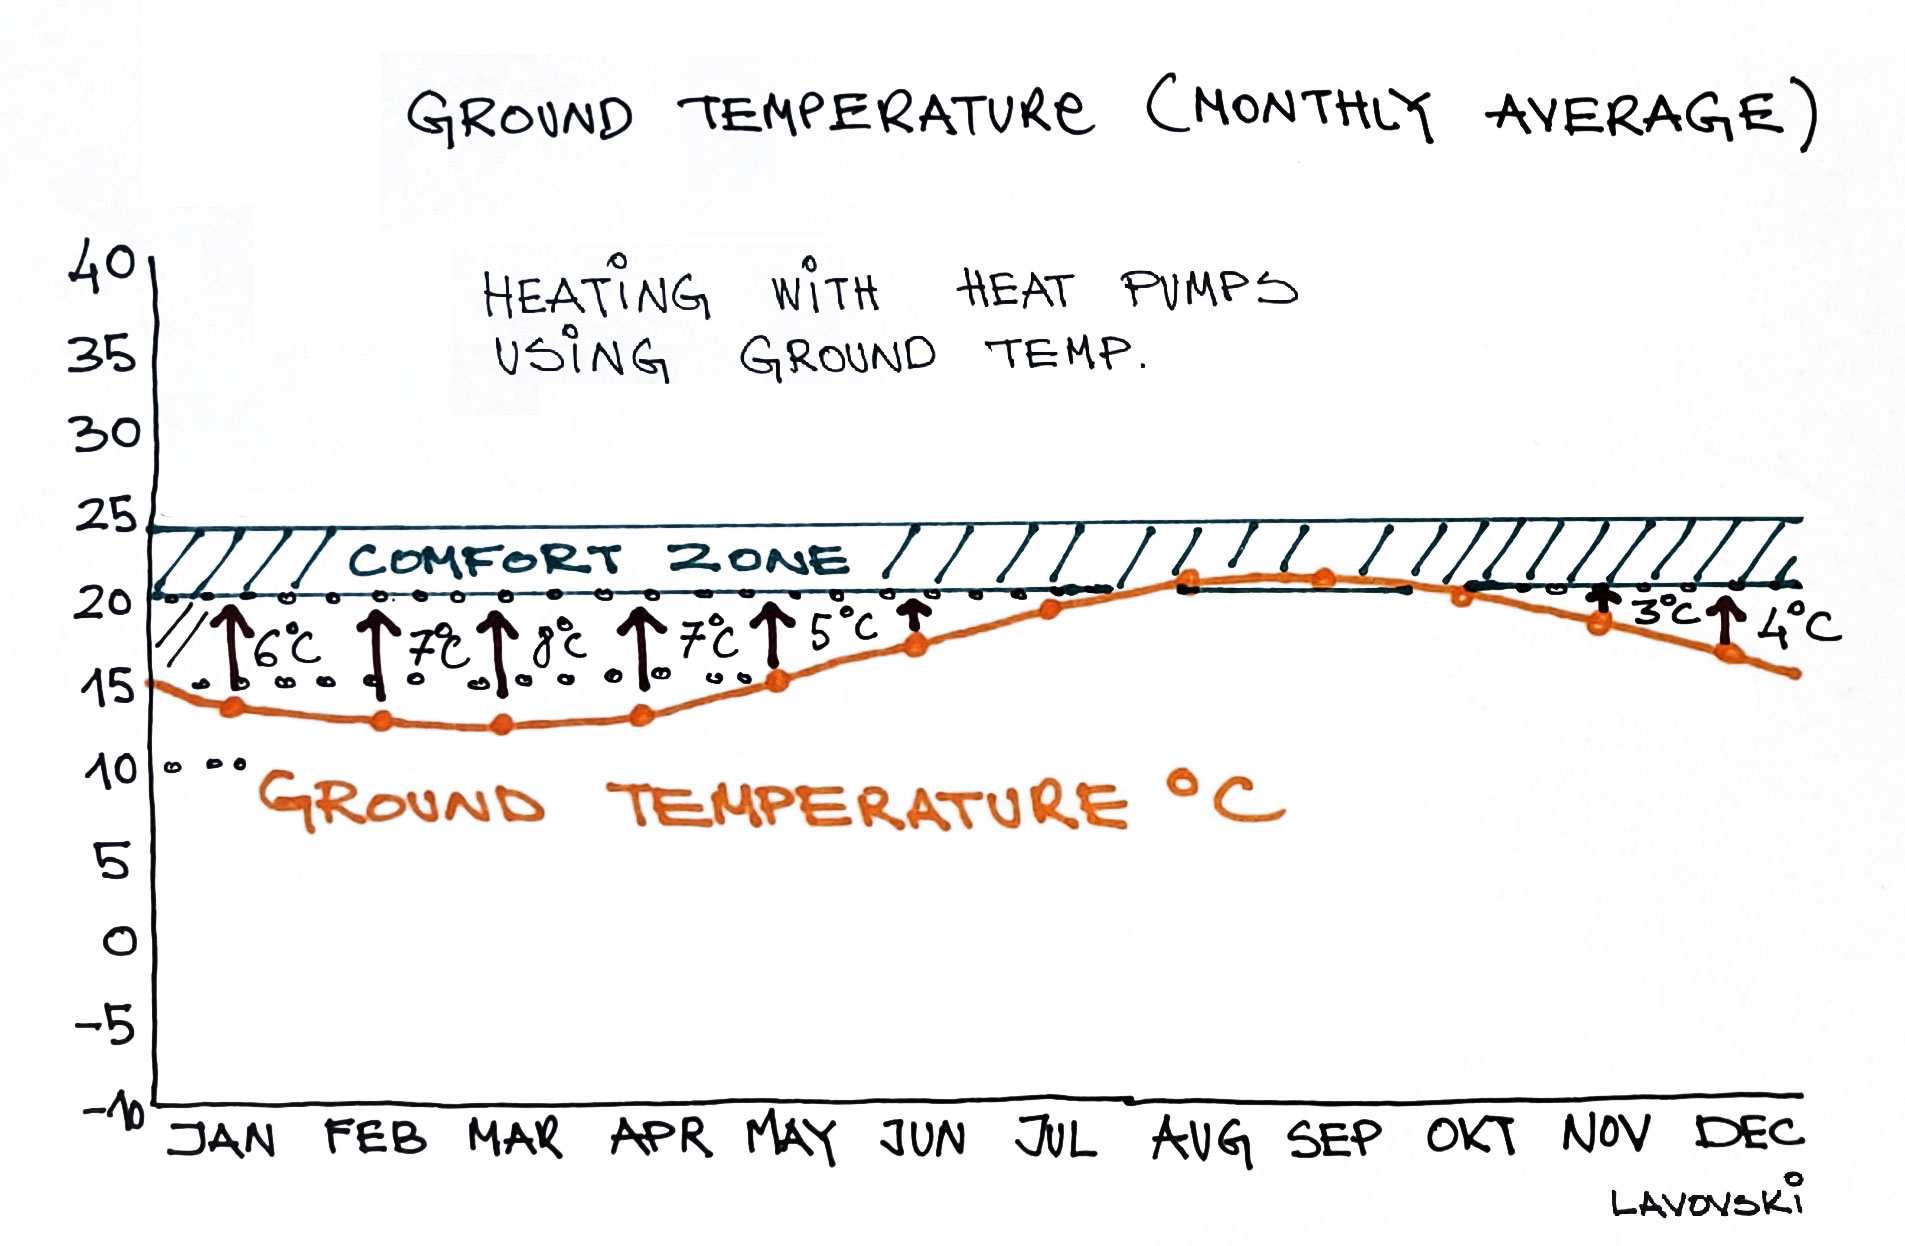 GROUND TEMPERATURE (MONTHLY AVERAGE)
HEATING WITH HEAT PUMPS
USING GROUND TEMP.
40
35
30
25
COMFORT ZONE
20
6°C 7°C 8°C 7°C 5°C 3°C 4°C
15
10
GROUND TEMPERATURE °C
5
0
-5
-10
JAN FEB MAR APR MAY JUN JUL AUG SEP OKT NOV DEC
LAVOVSKI